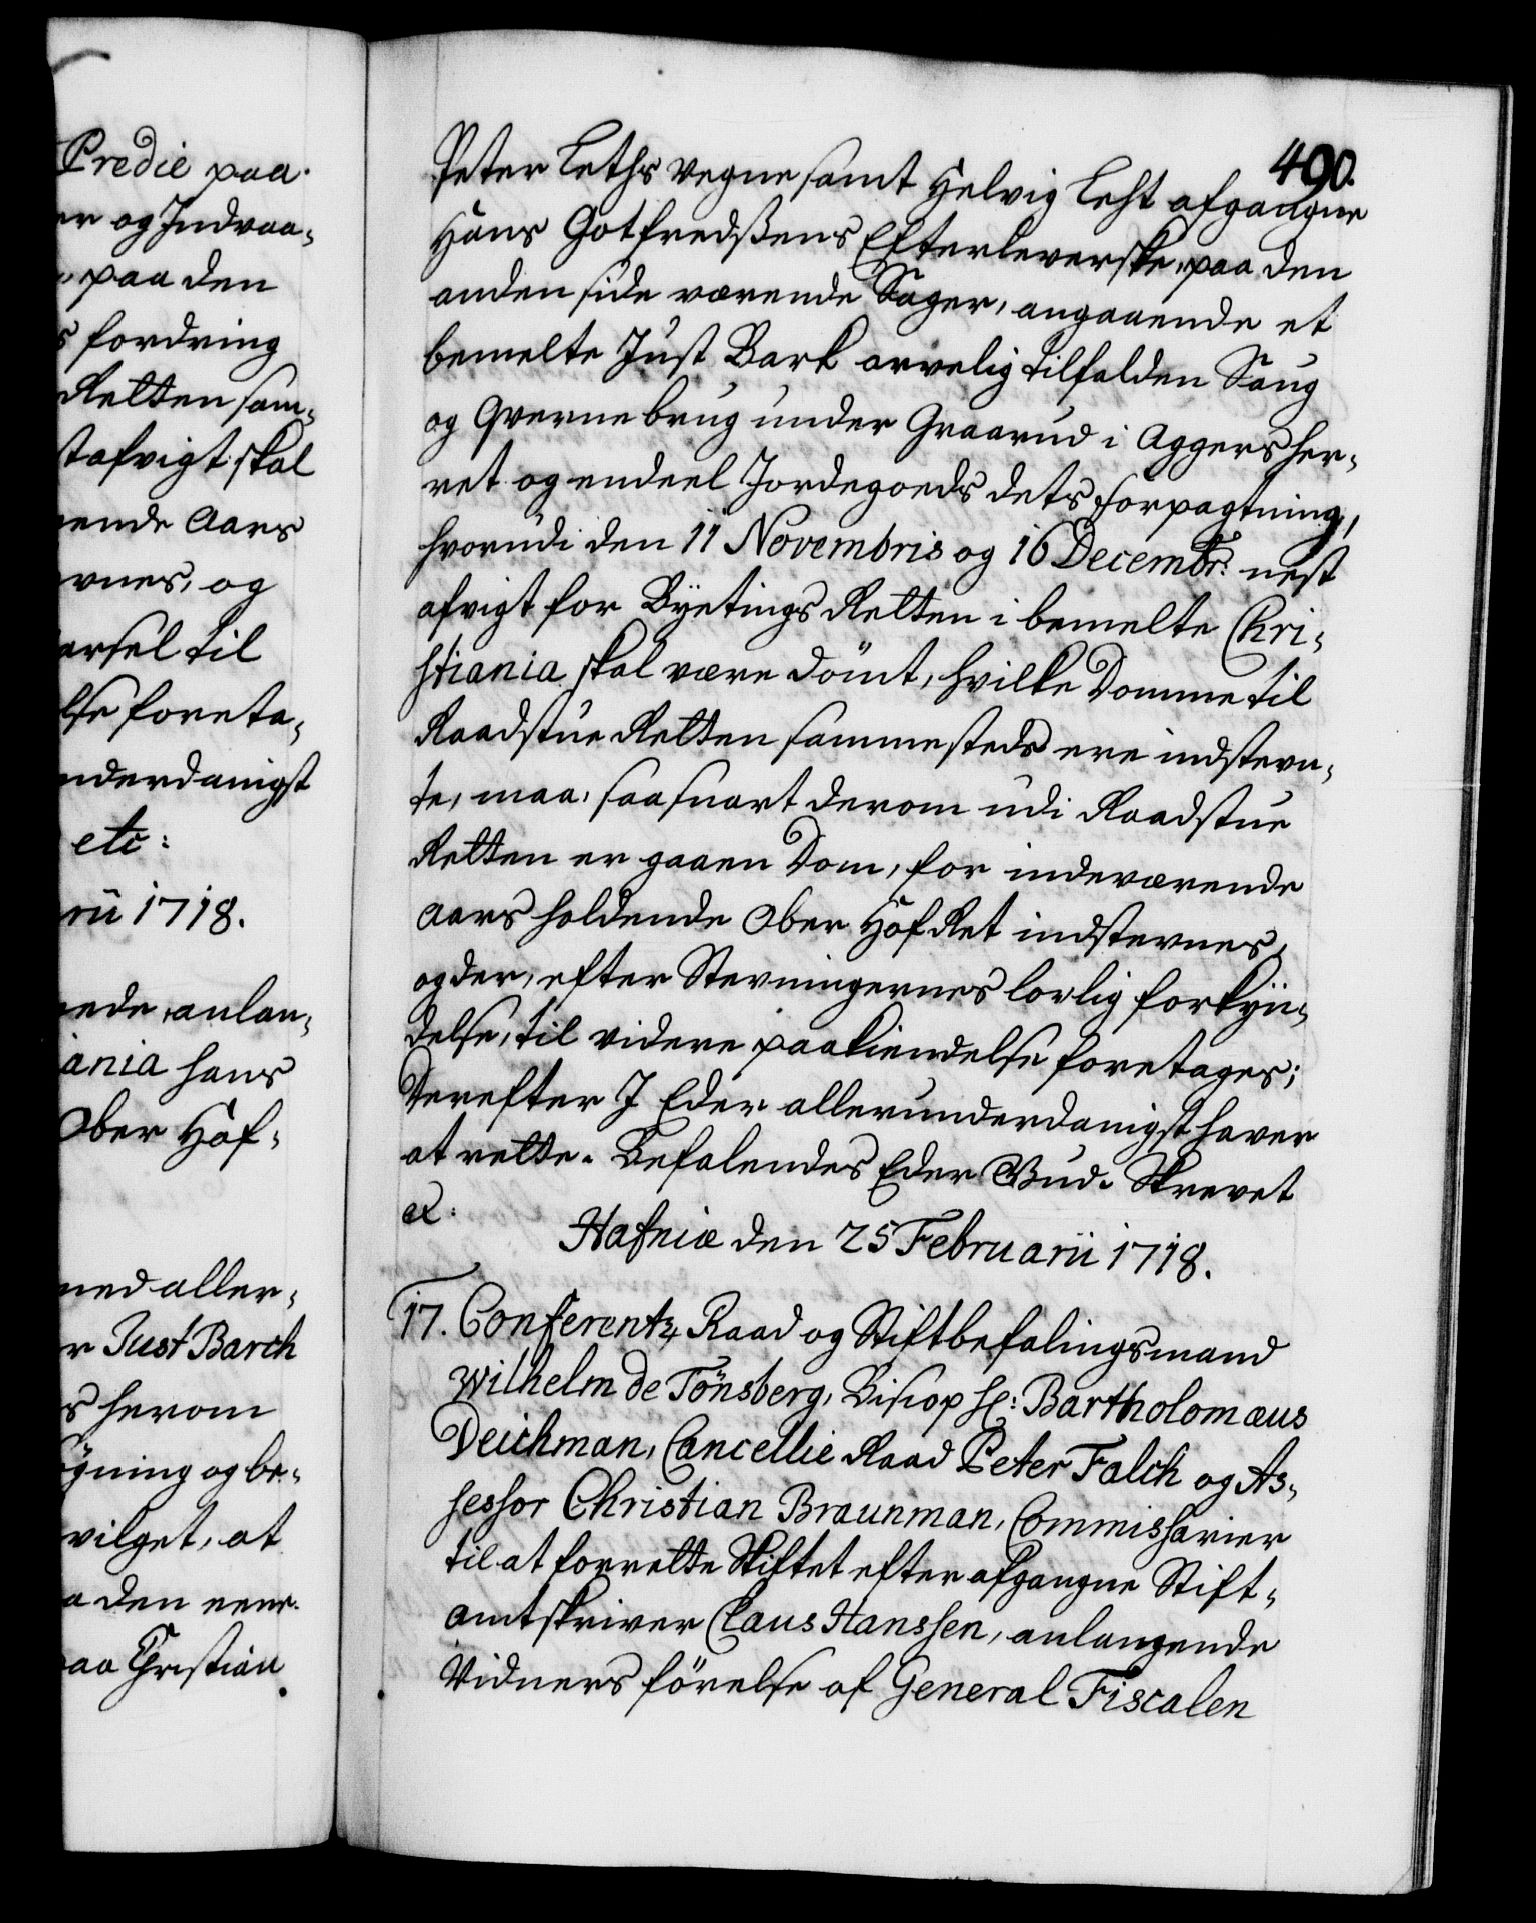 Predie paa
er og Indvaa-
paa den
s fordring
Retten sam-
stafvigt skal
ende Aars
vnes, og
arsel til
lse foreta-
nderdanigst
etc:
rii 1718.
ede, anlan-
iania hans
Ober Hof-
med aller-
r Just Barch
s herom
gning og be-
vilget, at
a den eene
paa Christian
490.
Peter Leths vegne samt Helvig Leht afgangne
Hans Gotfredßens Efterleverske, paa den
anden side værende Sager, angaaende et
bemelte Just Bark arvelig tilfalden Saug
og Qvernebrug under Graarud i Aggersher-
ret og endeel Jordegoeds dets forpagtning,
hvorudi den 11 Novembris og 16 Decembr: nest
afvigt for Byetings Retten i bemelte Chri-
stiania skal være dömt, hvilke Domme til
Raadstue Retten sammesteds ere indstevn-
te, maa, saasnart derom udi Raadstue
Retten er gaaen Dom, for indeværende
Aars holdende Ober Hof Ret indstevnes,
og der, efter Stevningernes lovlig forkyn-
delse, til videre paakiendelse foretages;
Derefter I Eder allerunderdanigst haver
at rette. Befalendes Eder Gud. Skrevet
etc:
Hafniæ den 25 Februarii 1718.
17. Conferentz Raad og Stiftbefalingsmand
Wilhelm de Tönsberg, Biscop Hr: Bartholomæus
Deichman, Cancellie Raad Peter Falch og As-
sessor Christian Braunman, Commissarier
til at forrette Skiftet efter afgangne Stift-
amtskriver Claus Hanssen, anlangende
Vidners förelse af General Fiscalen